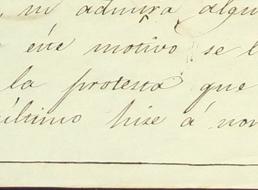 ni admira algu
éste motivo se l
la protesta que
último hize á nom